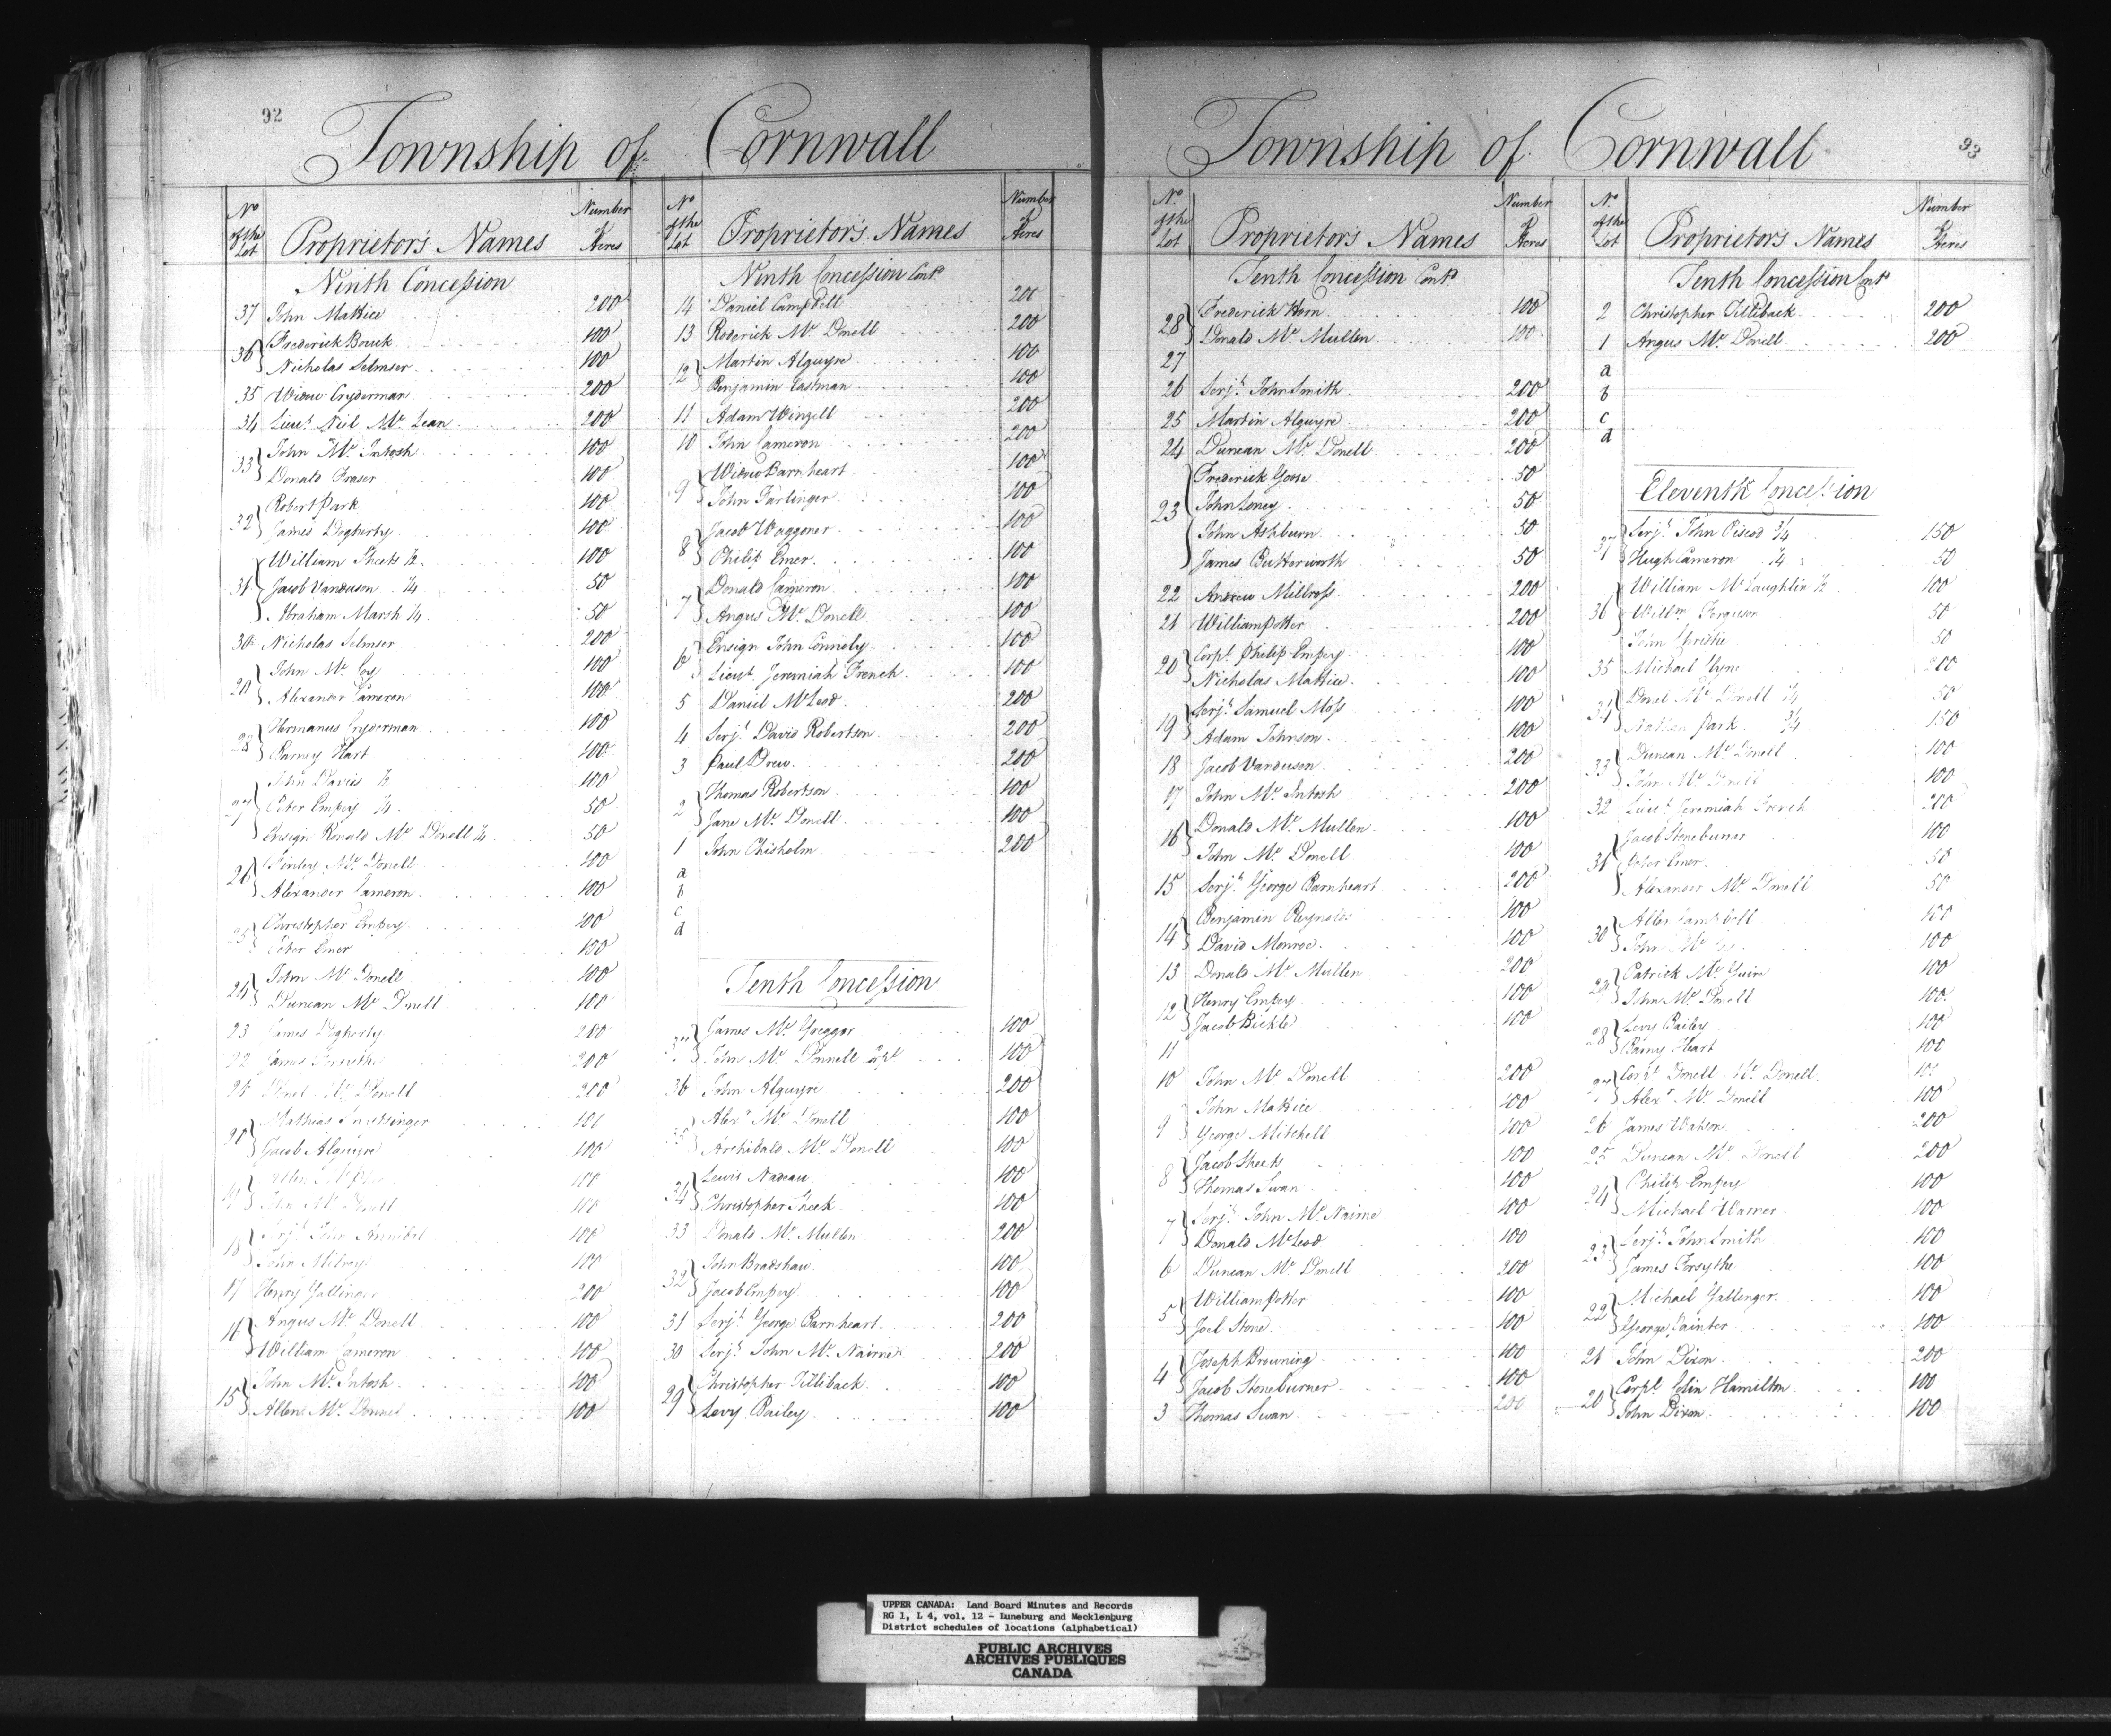 92
Township of Cornwall
No of the Lot Proprietor's Names Number of Acres
Ninth Concession
37 John Mattice 200
36 Frederick Bouck 100
Nicholas Silmser 100
35 Widow Cryderman 200
34 Lieut. Niel Mc Lean 200
33 John Mc Intosh 100
Donald Fraser 100
32 Robert Park 100
James Dogherty 100
31 William Sheets ½ 100
Jacob Vanduson ¼ 50
Abraham Marsh ¼ 50
30 Nicholas Silmser 200
29 John Mc Coy 100
Alexander Cameron 100
28 Hermanus Cryderman 100
Barney Hart 100
27 John Davies ½ 100
Peter Empey ¼ 50
Ensign Ronald Mc Donell ¼ 50
26 Finley Mc Donell 100
Alexander Cameron 100
25 Christopher Empey 100
Peter Emer 100
24 John Mc Donell 100
Duncan Mc Donell 100
23 James Dogherty 200
22 James 200
21 Donel Mc Donell 200
20 Mathias Snetsinger 100
Jacob Alguyre 100
19 Allen 100
John Mc Donell 100
18 Serjt. John Annibel 100
John Milross 100
17 Henry Gallinger 200
16 Angus Mc Donell 100
William Cameron 100
15 John Mc Intosh 100
Allen Mc Donnel 100
No of the Lot Proprietor's Names Number of Acres
Ninth Concession Contd
14 Daniel Campbell 200
13 Roderick Mc Donell 200
12 Martin Alguyre 100
Benjamin Eastman 100
11 Adam Winzell 200
10 John Cameron 200
9 Widow Barnheart 100
John Farlinger 100
8 Jacob Waggoner 100
Philip Emer 100
7 Donald Cameron 100
Angus Mc Donell 100
6 Ensign John Connoly 100
Lieut. Jeremiah French 100
5 Daniel McLeod 200
4 Serjt. David Robertson 200
3 Paul Drew 200
2 Thomas Robertson 100
Jane Mc Donell 100
1 John Chisholm 200
a
b
c
d
Tenth Concession
37 James Mc Greggor 100
John Mc Donnell Corpl 100
36 John Alguyre 200
35 Alexr Mc Donell 100
Archibald Mc Donell 100
34 Lewis Nadeau 100
Christopher Sheek 100
33 Donald Mc Mullen 200
32 John Bradshaw 100
Jacob Empey 100
31 Serjt. George Barnheart 200
30 Serjt. John Mc Nairne 200
29 Christopher Tilliback 100
Levy Bailey 100
93
Township of Cornwall
No of the Lot Proprietor's Names Number of Acres
Tenth Concession Contd
28 Frederick Horn 100
Donald Mc Mullen 100
27
26 Serjt. John Smith 200
25 Martin Alguyre 200
24 Duncan Mc Donell 200
23 Frederick Goose 50
John Loney 50
John Ashburn 50
James Butterworth 50
22 Andrew Millross 200
21 William Potter 200
20 Corpl. Philip Empey 100
Nicholas Mattice 100
19 Serjt. Samuel Moss 100
Adam Johnson 100
18 Jacob Vanduson 200
17 John Mc Intosh 200
16 Donald Mc Mullen 100
John Mc Donell 100
15 Serjt. George Barnheart 200
14 Benjamin Reynolds 100
David Monroe 100
13 Donald Mc Mullen 200
12 Henry Empey 100
Jacob Bickle 100
11
10 John Mc Donell 200
9 John Mattice 100
George Mitchell 100
8 Jacob Sheets 100
Thomas Swan 100
7 Serjt. John Mc Nairne 100
Donald McLeod 100
6 Duncan Mc Donell 200
5 William Potter 100
Joel Stone 100
4 Joseph Browning 100
Jacob Stoneburner 100
3 Thomas Swan 200
No of the Lot Proprietor's Names Number of Acres
Tenth Concession Contd
2 Christopher Tilliback 200
1 Angus Mc Donell 200
a
b
c
d
Eleventh Concession
37 Serjt. John Piscod ¾ 150
Hugh Cameron ¼ 50
36 William Mc Laughlin ½ 100
Willm Ferguson 50
John Christie 50
35 Michael Clyne 200
34 Donel Mc Donell ¼ 50
Nathan Park ¾ 150
33 Duncan Mc Donell 100
John Mc Donell 100
32 Lieut. Jeremiah French 200
31 Jacob Stoneburner 100
Peter Emer 50
Alexander Mc Donell 50
30 Allen Campbell 100
John Mc 100
29 Patrick Mc Guire 100
John Mc Donell 100
28 Levy Bailey 100
Barny Heart 100
27 Corpl Donell Mc Donell 100
Alexr Mc Donell 100
26 James Watson 200
25 Duncan Mc Donell 200
24 Philip Empey 100
Michael Warner 100
23 Serjt. John Smith 100
James Forsythe 100
22 Michael Gallinger 100
George Painter 100
21 John Dixon 200
20 Corpl. Colin Hamilton 100
John Dixon 100
UPPER CANADA: Land Board Minutes and Records
RG 1, L 4, vol. 12 - Luneburg and Mecklenburg
District schedules of locations (alphabetical)
PUBLIC ARCHIVES
ARCHIVES PUBLIQUES
CANADA